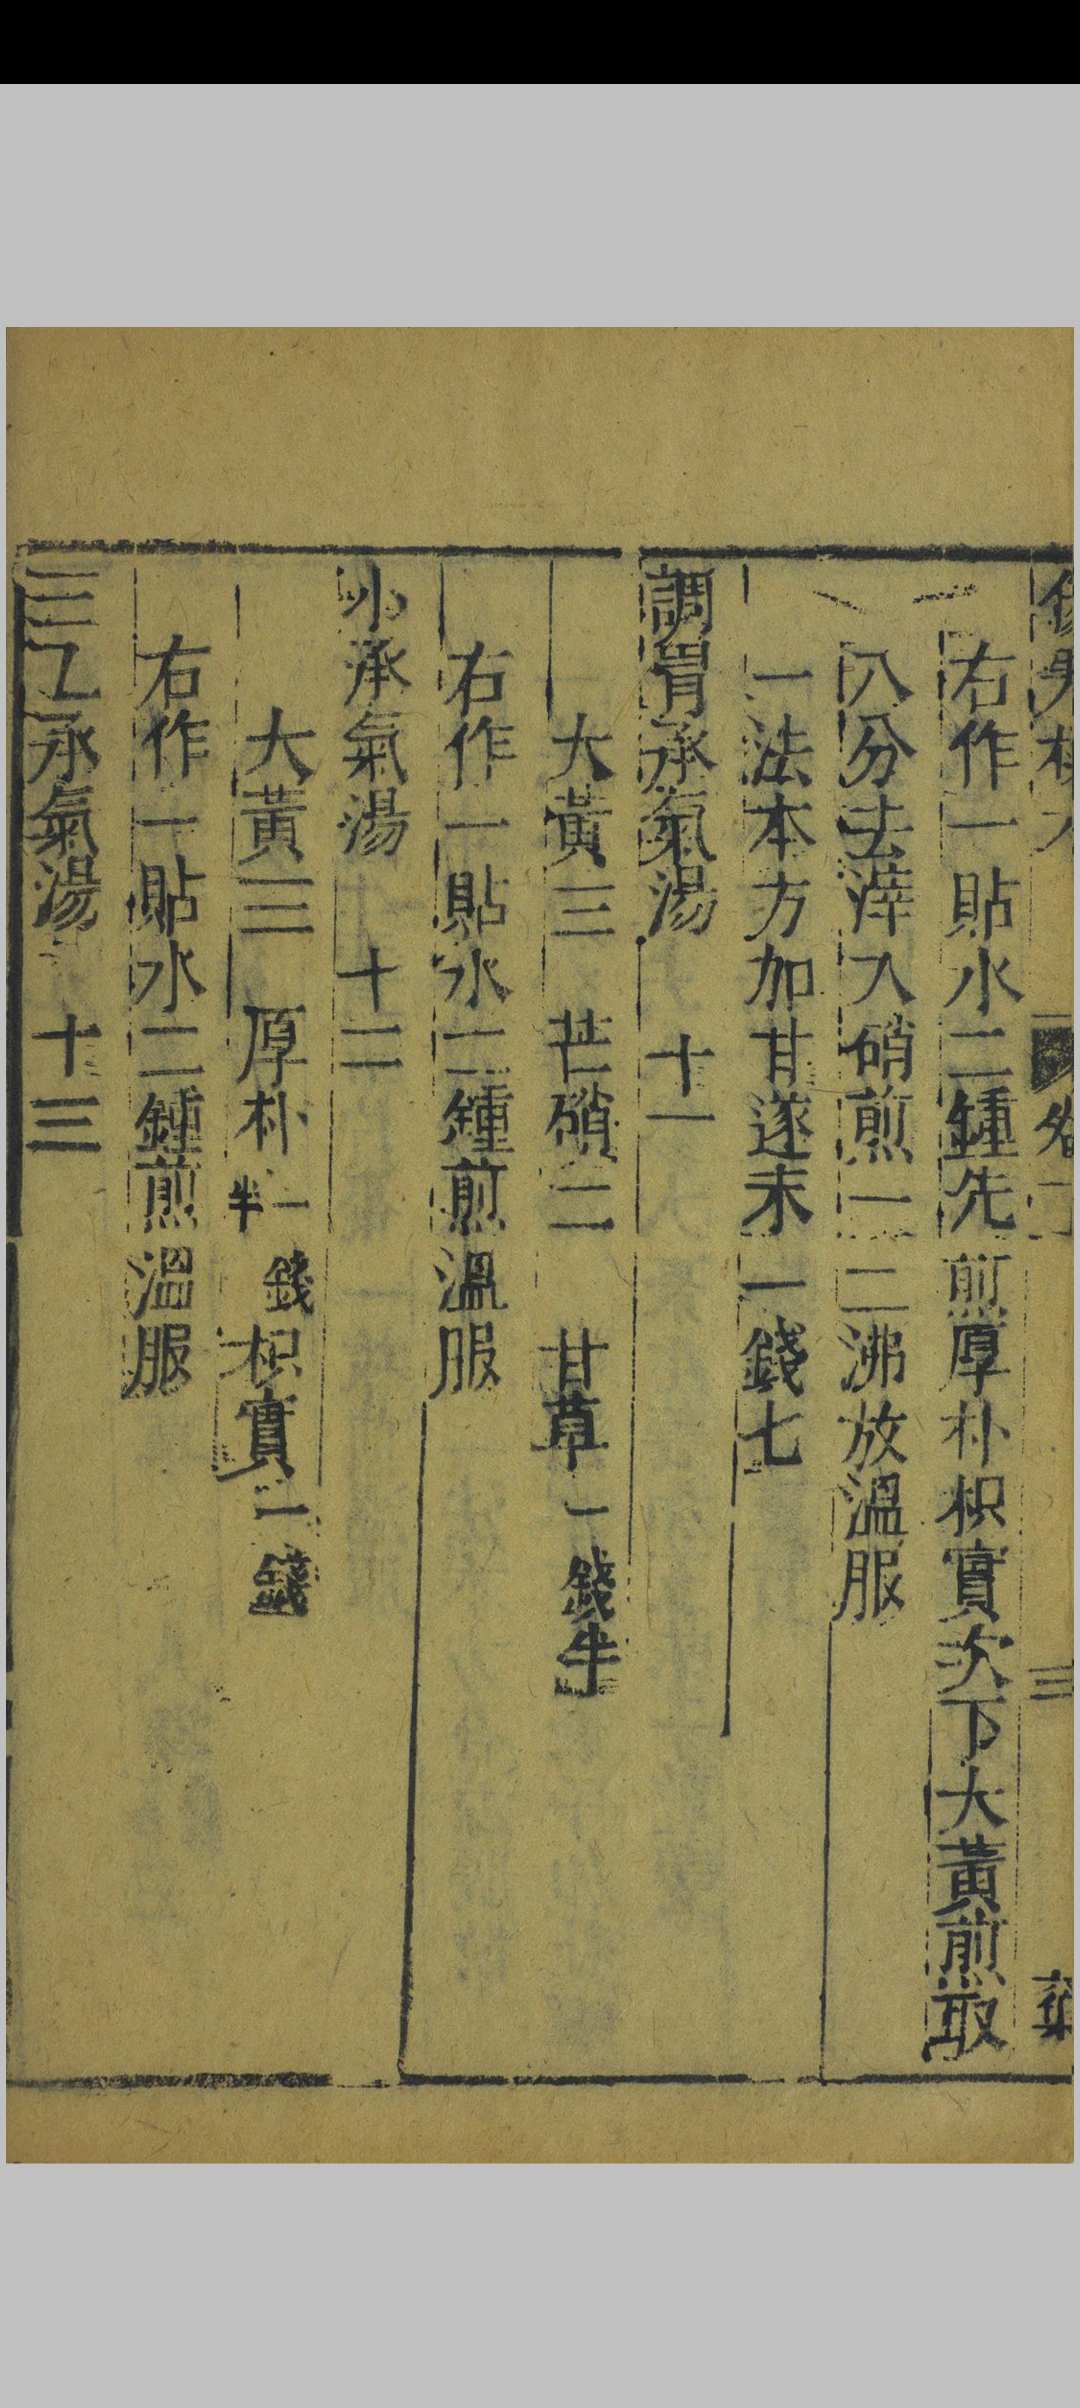 右作一貼水二鍾先煎厚朴枳實次下大黃煎取
八分去滓入硝煎一二沸放溫服
一法本方加甘遂末一錢七
調胃承氣湯 十一
大黃三 芒硝二 甘草一錢半
右作一貼水二鍾煎溫服
小承氣湯 十二
大黃三 厚朴一錢半 枳實一錢
右作一貼水二鍾煎溫服
三乙承氣湯 十三